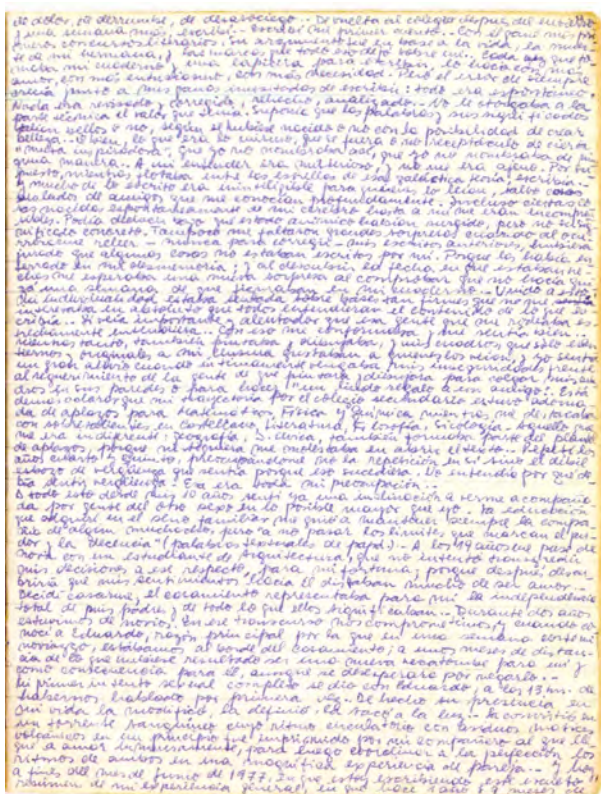 de dolor, de derrumbe, de desasosiego... De vuelta al colegio después del entierro
y una semana más, escribí... Escribí mi primer cuento... Con él gané mis pri-
meros concursos literarios. Su argumento fue en base a la vida, la muer-
te de mi hermana, y los marcos que todo eso dejó sobre mí. Cada vez que to-
maba mi cuaderno y una lapicera para escribir, lo hacía con más
amor, con más entusiasmo, con más necesidad. Pero el error de ello
junto a mis ganas inusitadas de escribir: todo era espontáneo.
Nada era revisado, corregido, rehecho, analizado. No le otorgaba a la
parte técnica el valor que tenía. Suponía que las palabras y sus significados
eran bellos o no, según él hubiese nacido o no con la posibilidad de crear
belleza. O bien, el que era lo nuevo, que yo fuera o no receptáculo de cierta
musa inspiradora, que yo no nombraba de nin-
guna manera... A mi entender era misterioso, y no me era ajeno. Por su-
puesto, mientras flotaba entre las estrellas de esa galáctica fantasía escribía...
y mucho de lo escrito era ininteligible para quienes lo leían, salvo casos
aislados de amigos que me conocían profundamente. Incluso ciertas co-
sas nacidas espontáneamente de mi cerebro hasta a mí me eran incompren-
sibles. Podía deducir bajo qué estado anímico habían surgido, pero no su sig-
nificado concreto. Tampoco me faltaron grandes sorpresas cuando al ocu-
rrírseme releer - nunca para corregir - mis escritos anteriores, hubiera
jurado que algunas cosas no estaban escritas por mí. Porque las había en-
terrado en mi desmemoria. Y al descubrir la fecha en que estaban he-
chas me esperaba una nueva sorpresa al comprobar que no hacía que
una semana de que figuraban en mi cuaderno. Unido a esto
mi individualidad estaba fundada sobre bases tan firmes que no me
interesaba en absoluto que todos entendieran el contenido de lo que es-
cribía. Yo sólo
Con eso me conformaba y me sentía bien...
Mientras tanto, también pintaba y dibujaba, y mis cuadros, que sólo eran
tiernos y originales a mi
gustaban a quienes los veían, y yo sentía
un gran alivio cuando íntimamente mis inseguridades frente
al requerimiento de la gente de que pintara y dibujara para colgar mis cua-
dros en sus paredes o para hacer "un lindo regalo a sus amigos". Está
demás aclarar que mi trayectoria por el colegio secundario estuvo adorna-
da de aplazos para Matemáticas, Física y Química mientras me destacaba
con sobresalientes en Castellano, Literatura, Filosofía, Sicología. Aquello que
me era indiferente: Geografía, también formaba parte del plantel
de aplazos, porque ni siquiera me molestaba en abrir el texto... Repetí los
años cuarto y quinto, preocupándome no la repetición en sí sino el débil
esbozo de vergüenza que sentía porque eso sucediera. No entendía por qué de-
bía sentir vergüenza. Esa era toda mi preocupación.
A todo esto desde muy 10 años sentí ya una inclinación a verme acompaña-
da por gente del otro sexo en lo posible mayor que yo. La educación
que adquirí en el seno familiar me guió a mantener siempre la compa-
ñía de algún muchacho, pero "a no pasar los límites que marcan el pu-
dor y la decencia" (palabras textuales de papá). A los 19 años me puse de
novia con un estudiante de Arquitectura, que no intentó transgredir
mis decisiones a ese respecto, para mi fortuna, porque después descu-
briría que mis sentimientos hacia él distaban mucho de ser amor.
Decidí casarme, el casamiento representaba para mí la independencia
total de mis padres y de todo lo que ellos significaban. Durante dos años
estuvimos de novios. En ese transcurso nos comprometimos, y cuando co-
nocí a Eduardo, razón principal por la que en una semana corté mi
noviazgo, estábamos al borde del casamiento; a unos meses de distan-
cia de lo que hubiese resultado ser una nueva hecatombe para mí y
como consecuencia para él, aunque se desesperara por negarlo...
Mi primer intento sexual completo se dio con Eduardo, a las 13 hs. de
habernos hablado por primera vez. De hecho su presencia en
mi vida la modificó, la definió, la sacó a la luz... Se convirtió en
un torrente sanguíneo cuyo ritmo circulatorio con leves matices
volcánicos en un principio fue por mi compañero al que lle-
gué a amar inmensamente, para luego coordinar a la perfección los
ritmos de ambos en una magnífica experiencia de pareja... Y hoy
a fines del mes de junio de 1977, en que estoy escribiendo este escueto
resumen de mi experiencia general, en que hace 1 año y 9 meses de